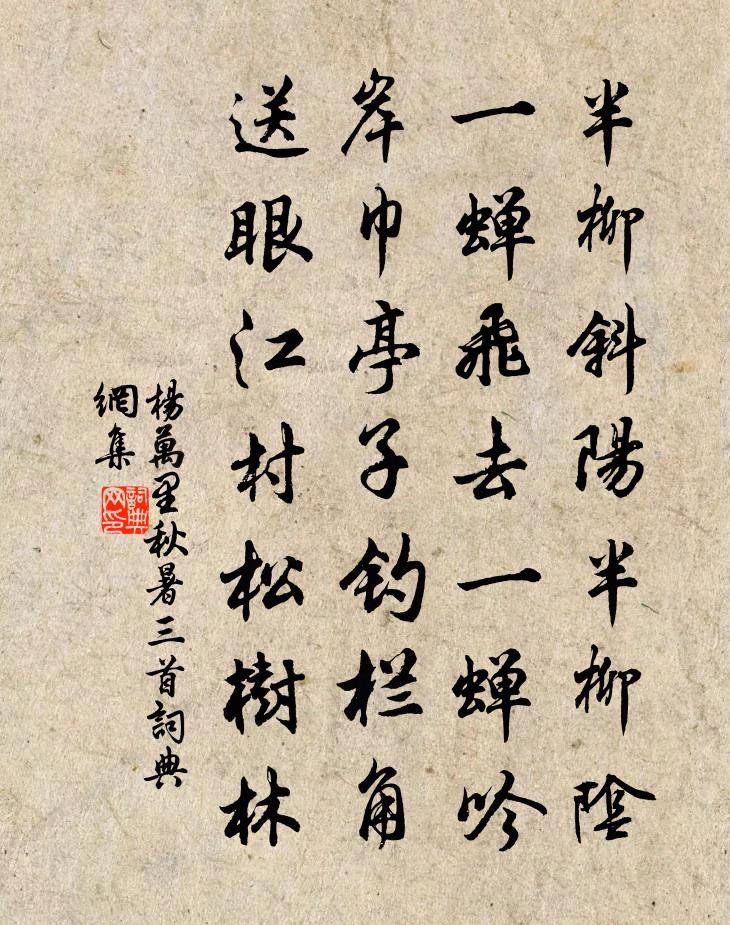 半柳斜陽半柳陰
一蟬飛去一蟬吟
岸巾亭子钓栏角
送眼江村松樹林
楊萬里秋暑三首詞典
網集
詞典
网印